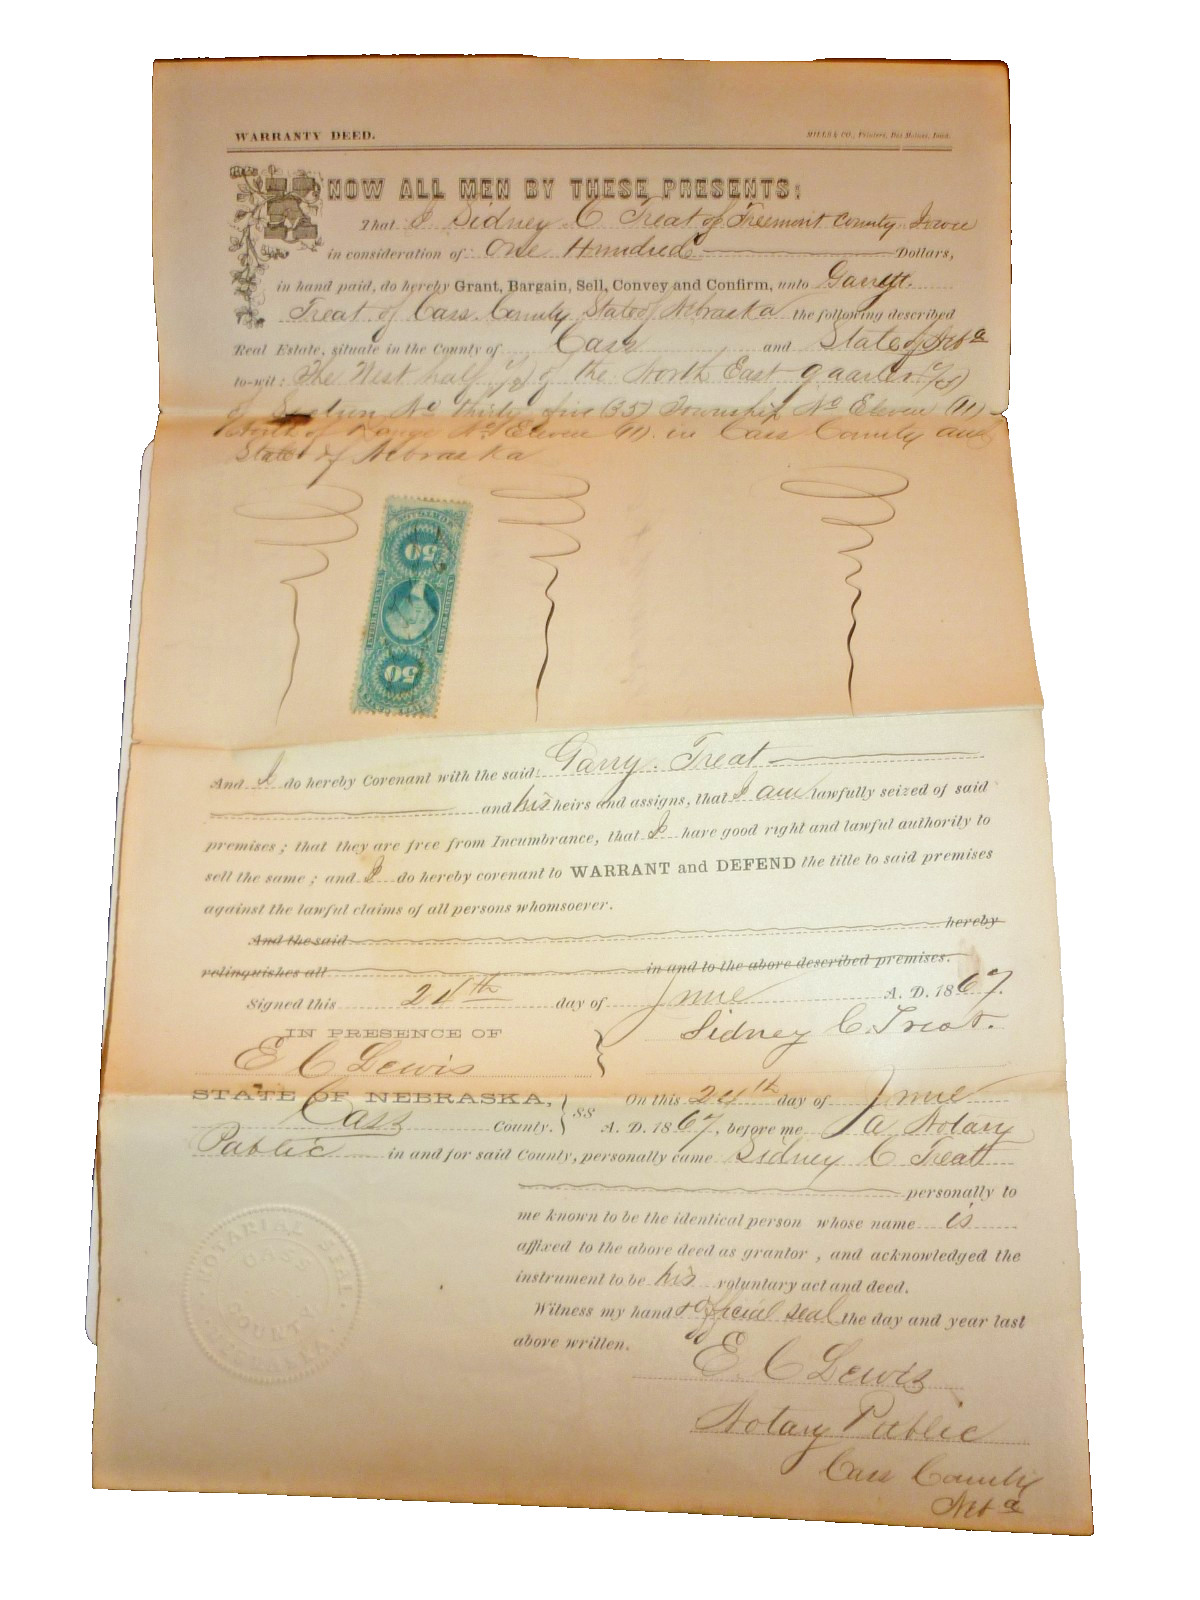 WARRANTY DEED.
MILLS & CO., Printers, Des Moines, Iowa.
KNOW ALL MEN BY THESE PRESENTS:
That I Sidney C Treat of Freemont County Iowa
in consideration of One Hundred Dollars,
in hand paid, do hereby Grant, Bargain, Sell, Convey and Confirm, unto Garrett
Treat of Cass County State of Nebraska the following described
Real Estate, situate in the County of Cass and State of Nebª
to-wit: The West half (1/2) of the North East quarter (1/4)
of Section Nº thirty five (35) Township Nº Eleven (11)
North of Range Nº Eleven (11) in Cass County and
State of Nebraska
50
UNITED STATES
INTER. REVENUE
50
And I do hereby Covenant with the said Garry Treat
and his heirs and assigns, that I am lawfully seized of said
premises; that they are free from Incumbrance, that I have good right and lawful authority to
sell the same; and I do hereby covenant to WARRANT and DEFEND the title to said premises
against the lawful claims of all persons whomsoever.
And the said hereby
relinquishes all in and to the above described premises.
Signed this 24th day of June A. D. 1867.
IN PRESENCE OF Sidney C. Treat.
E C Lewis
STATE OF NEBRASKA, On this 24th day of June
Cass County. } SS A. D. 1867, before me a Notary
Public in and for said County, personally came Sidney C Treatt
personally to
me known to be the identical person whose name is
affixed to the above deed as grantor, and acknowledged the
instrument to be his voluntary act and deed.
Witness my hand & official seal the day and year last
above written.
NOTARIAL SEAL
OF
COUNTY
NEBRASKA
E. C Lewis
Notary Public
Cass County
Nebª